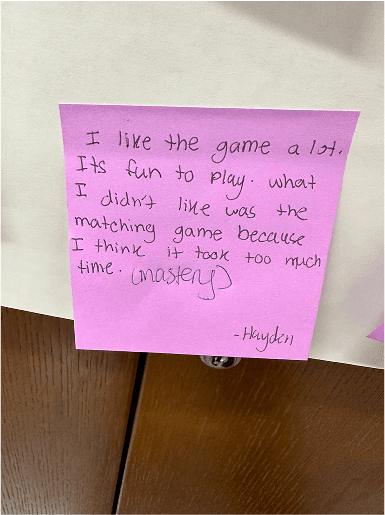 I like the game a lot.
Its fun to play. what
I didn't like was the
matching game because
I think it took too much
time. (mastery)
-Hayden